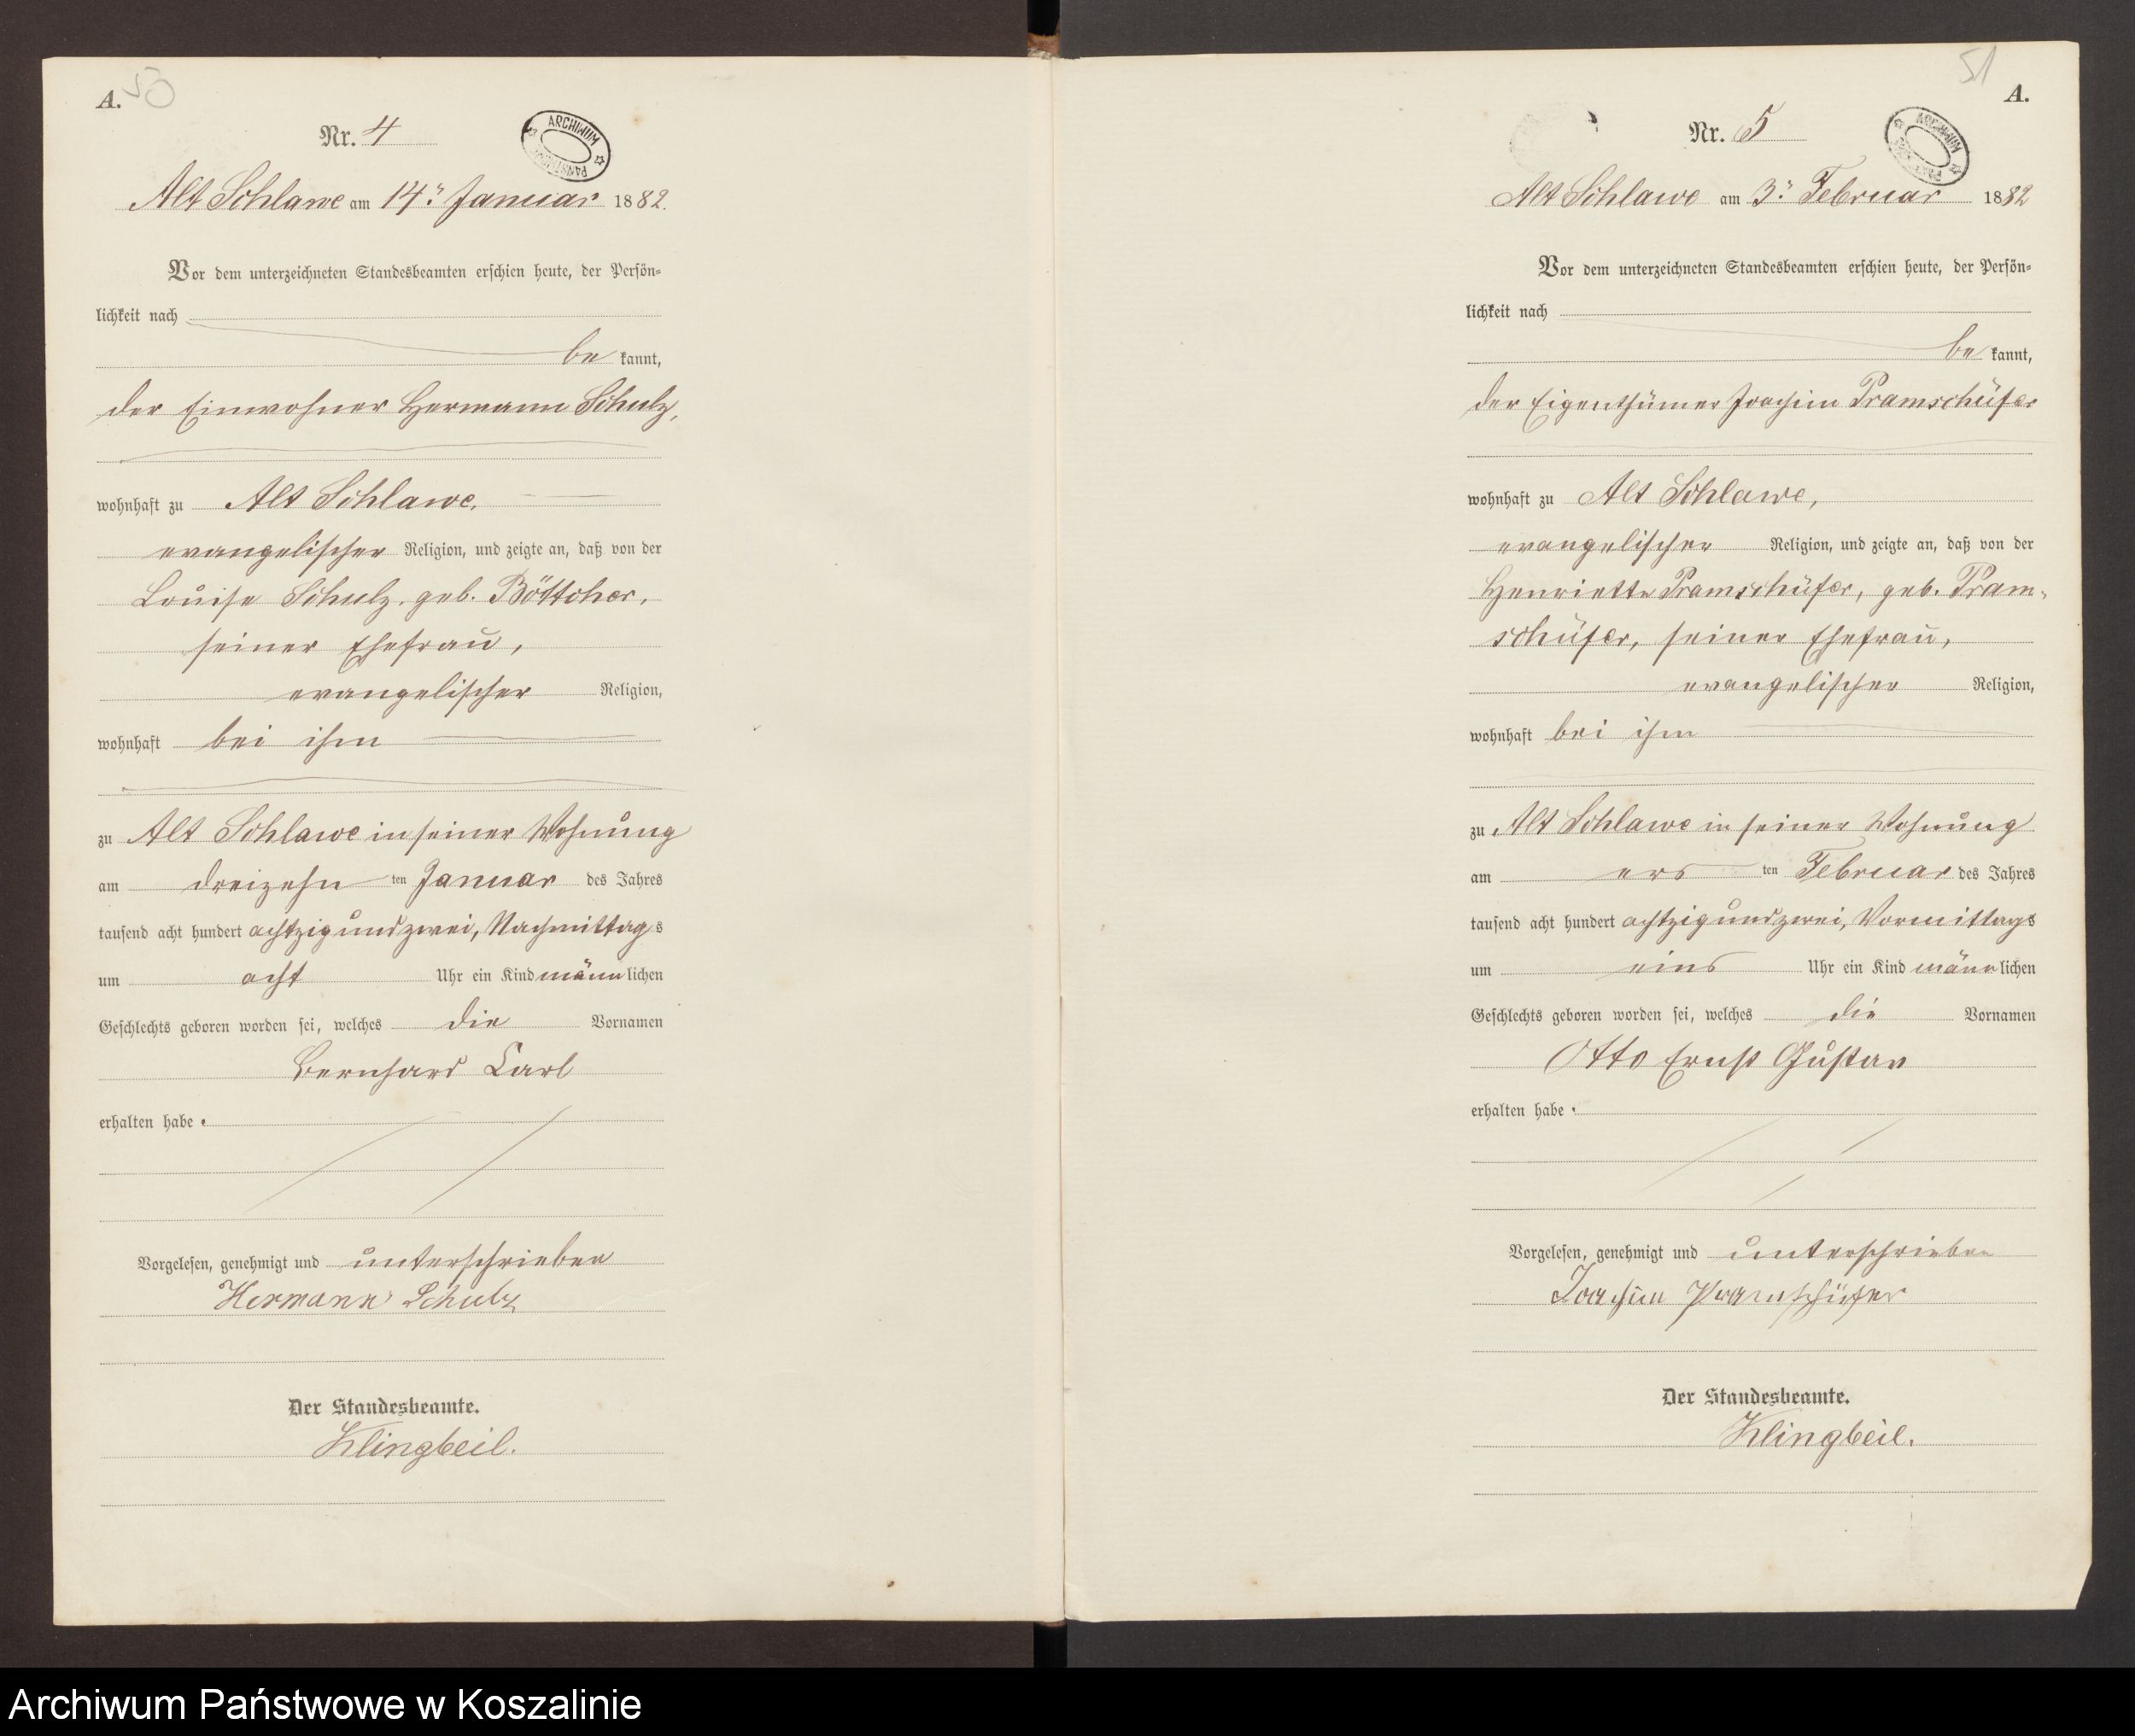 A. 50
Nr. 4
ARCHIWUM PAŃSTW
Alt Schlawe am 14ten Januar 1882.
Vor dem unterzeichneten Standesbeamten erschien heute, der Persön-
lichkeit nach
be kannt,
der Einwohner Hermann Schulz,
wohnhaft zu Alt Schlawe,
evangelischer Religion, und zeigte an, daß von der
Louise Schulz, geb. Böttcher,
seiner Ehefrau,
evangelischer Religion,
wohnhaft bei ihm
zu Alt Schlawe in seiner Wohnung
am dreizehn ten Januar des Jahres
tausend acht hundert achtzig und zwei, Nachmittags
um acht Uhr ein Kind männlichen
Geschlechts geboren worden sei, welches die Vornamen
Bernhard Carl
erhalten habe.
Vorgelesen, genehmigt und unterschrieben
Hermann Schulz
Der Standesbeamte.
Klingbeil.
51
A.
Nr. 5
ARCHIWUM
Alt Schlawe am 3ten Februar 1882
Vor dem unterzeichneten Standesbeamten erschien heute, der Persön-
lichkeit nach
be kannt,
der Eigenthümer Joachim Pramschüfer
wohnhaft zu Alt Schlawe,
evangelischer Religion, und zeigte an, daß von der
Henriette Pramschüfer, geb. Pram-
schüfer, seiner Ehefrau,
evangelischer Religion,
wohnhaft bei ihm
zu Alt Schlawe in seiner Wohnung
am ers ten Februar des Jahres
tausend acht hundert achtzig und zwei, Vormittags
um eins Uhr ein Kind männlichen
Geschlechts geboren worden sei, welches die Vornamen
Otto Ernst Gustav
erhalten habe.
Vorgelesen, genehmigt und unterschrieben
Joachim Pramschüfer
Der Standesbeamte.
Klingbeil.
Archiwum Państwowe w Koszalinie